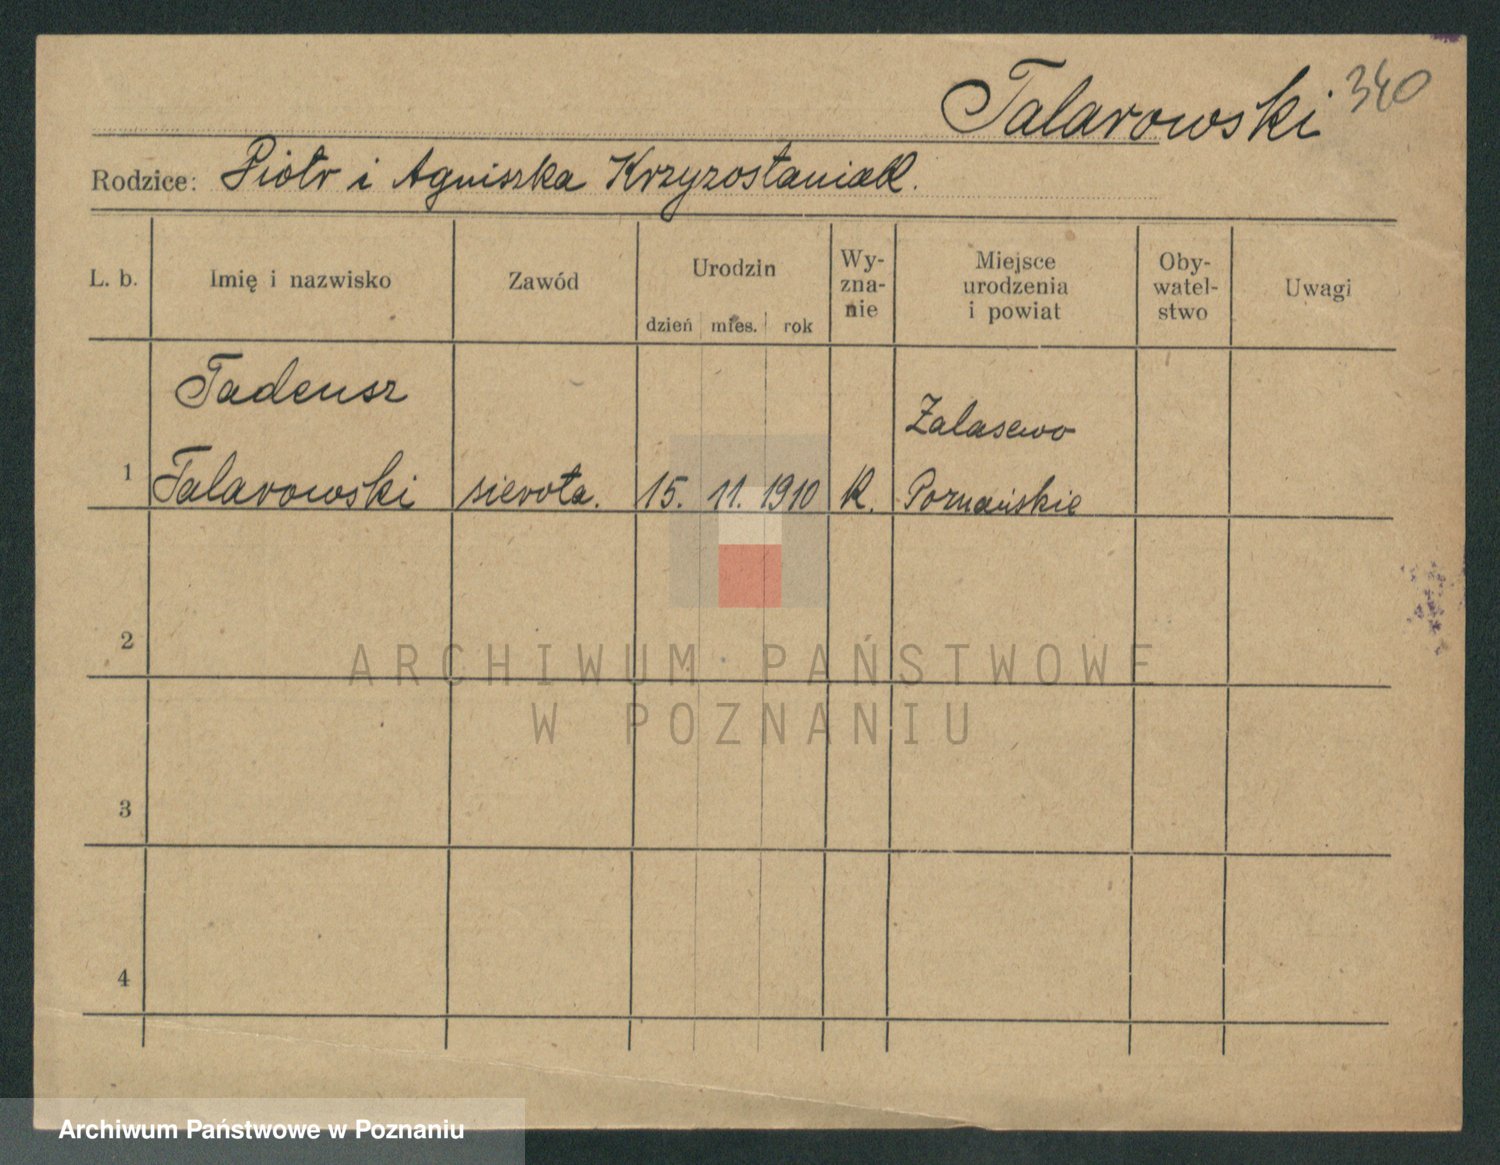 Talarowski 340
Rodzice: Piotr i Agniszka Krzyzostaniak.
L. b. Imię i nazwisko Zawód Urodzin Wy-zna-nie Miejsce urodzenia i powiat Oby-watel-stwo Uwagi
dzień mies. rok
Tadeusz
Zalasewo
1 Talarowski sierota. 15. 11. 1910 K. Poznańskie
2
ARCHIWUM PAŃSTWOWE
W POZNANIU
3
4
Archiwum Państwowe w Poznaniu